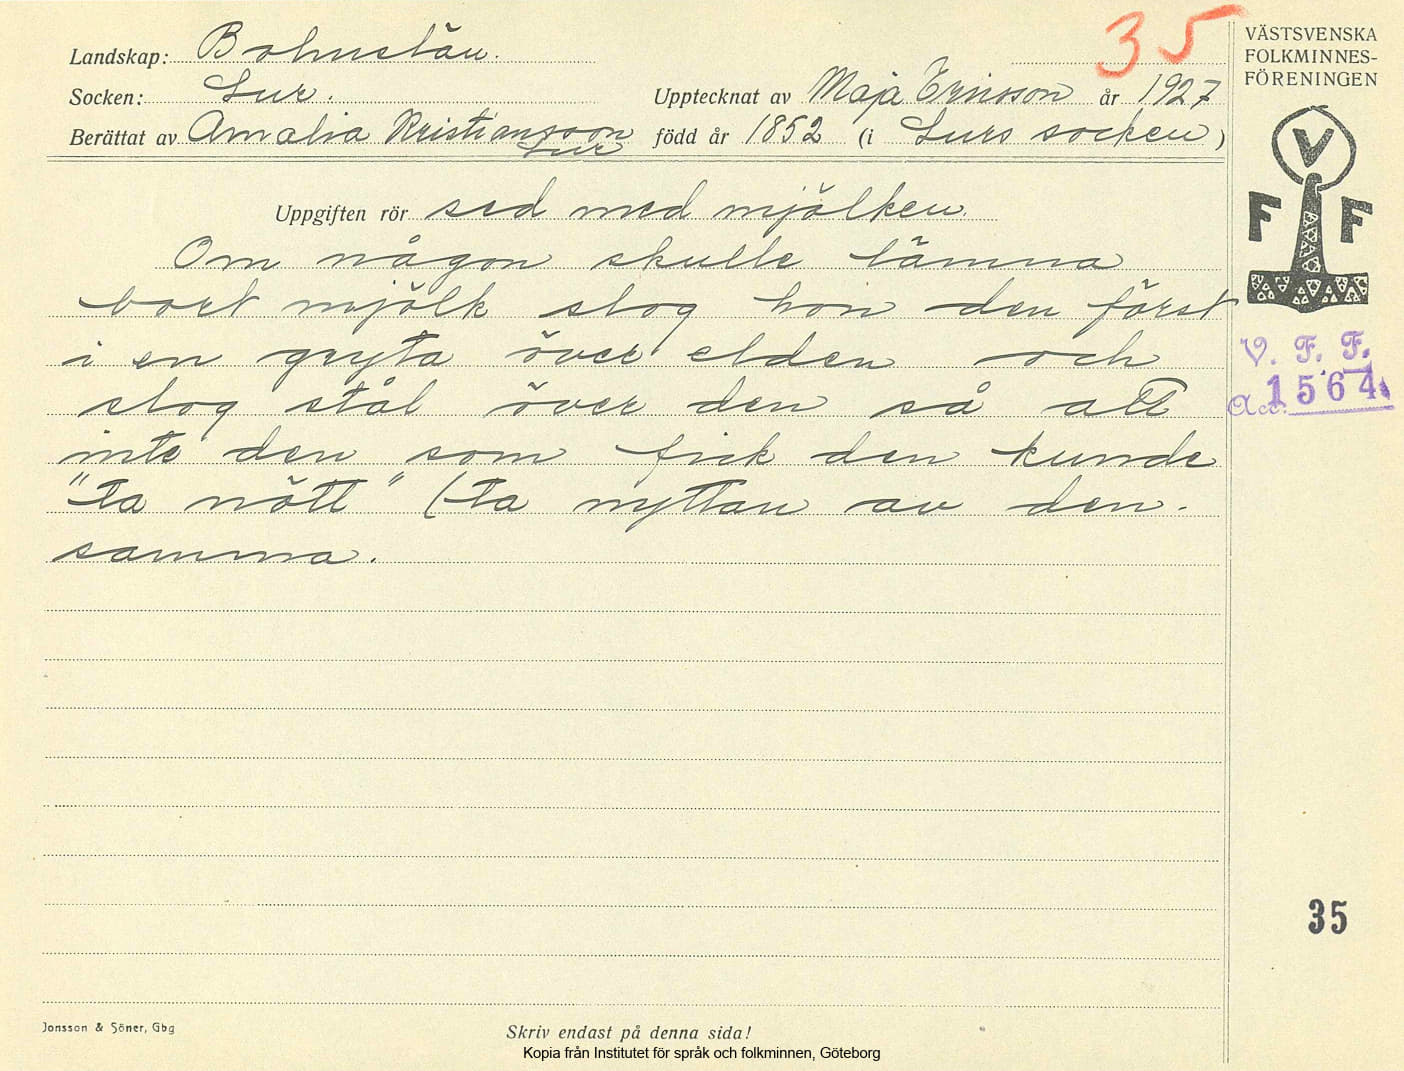 35
VÄSTSVENSKA
FOLKMINNES-
FÖRENINGEN
Landskap: Bohuslän.
Socken: Lur.
Upptecknat av Maja Ericsson år 1927
Berättat av Amalia Kristiansson
Lur
född år 1852 (i Lurs socken)
V
F F
Uppgiften rör sed med mjölken.
Om någon skulle lämna
bort mjölk slog hon den först
i en gryta över elden och
slog stål över den så att
inte den som fick den kunde
"ta nött" (ta nyttan av den-
samma.
V. F. F.
Acc. 1564
35
Jonsson & Söner, Gbg
Skriv endast på denna sida!
Kopia från Institutet för språk och folkminnen, Göteborg